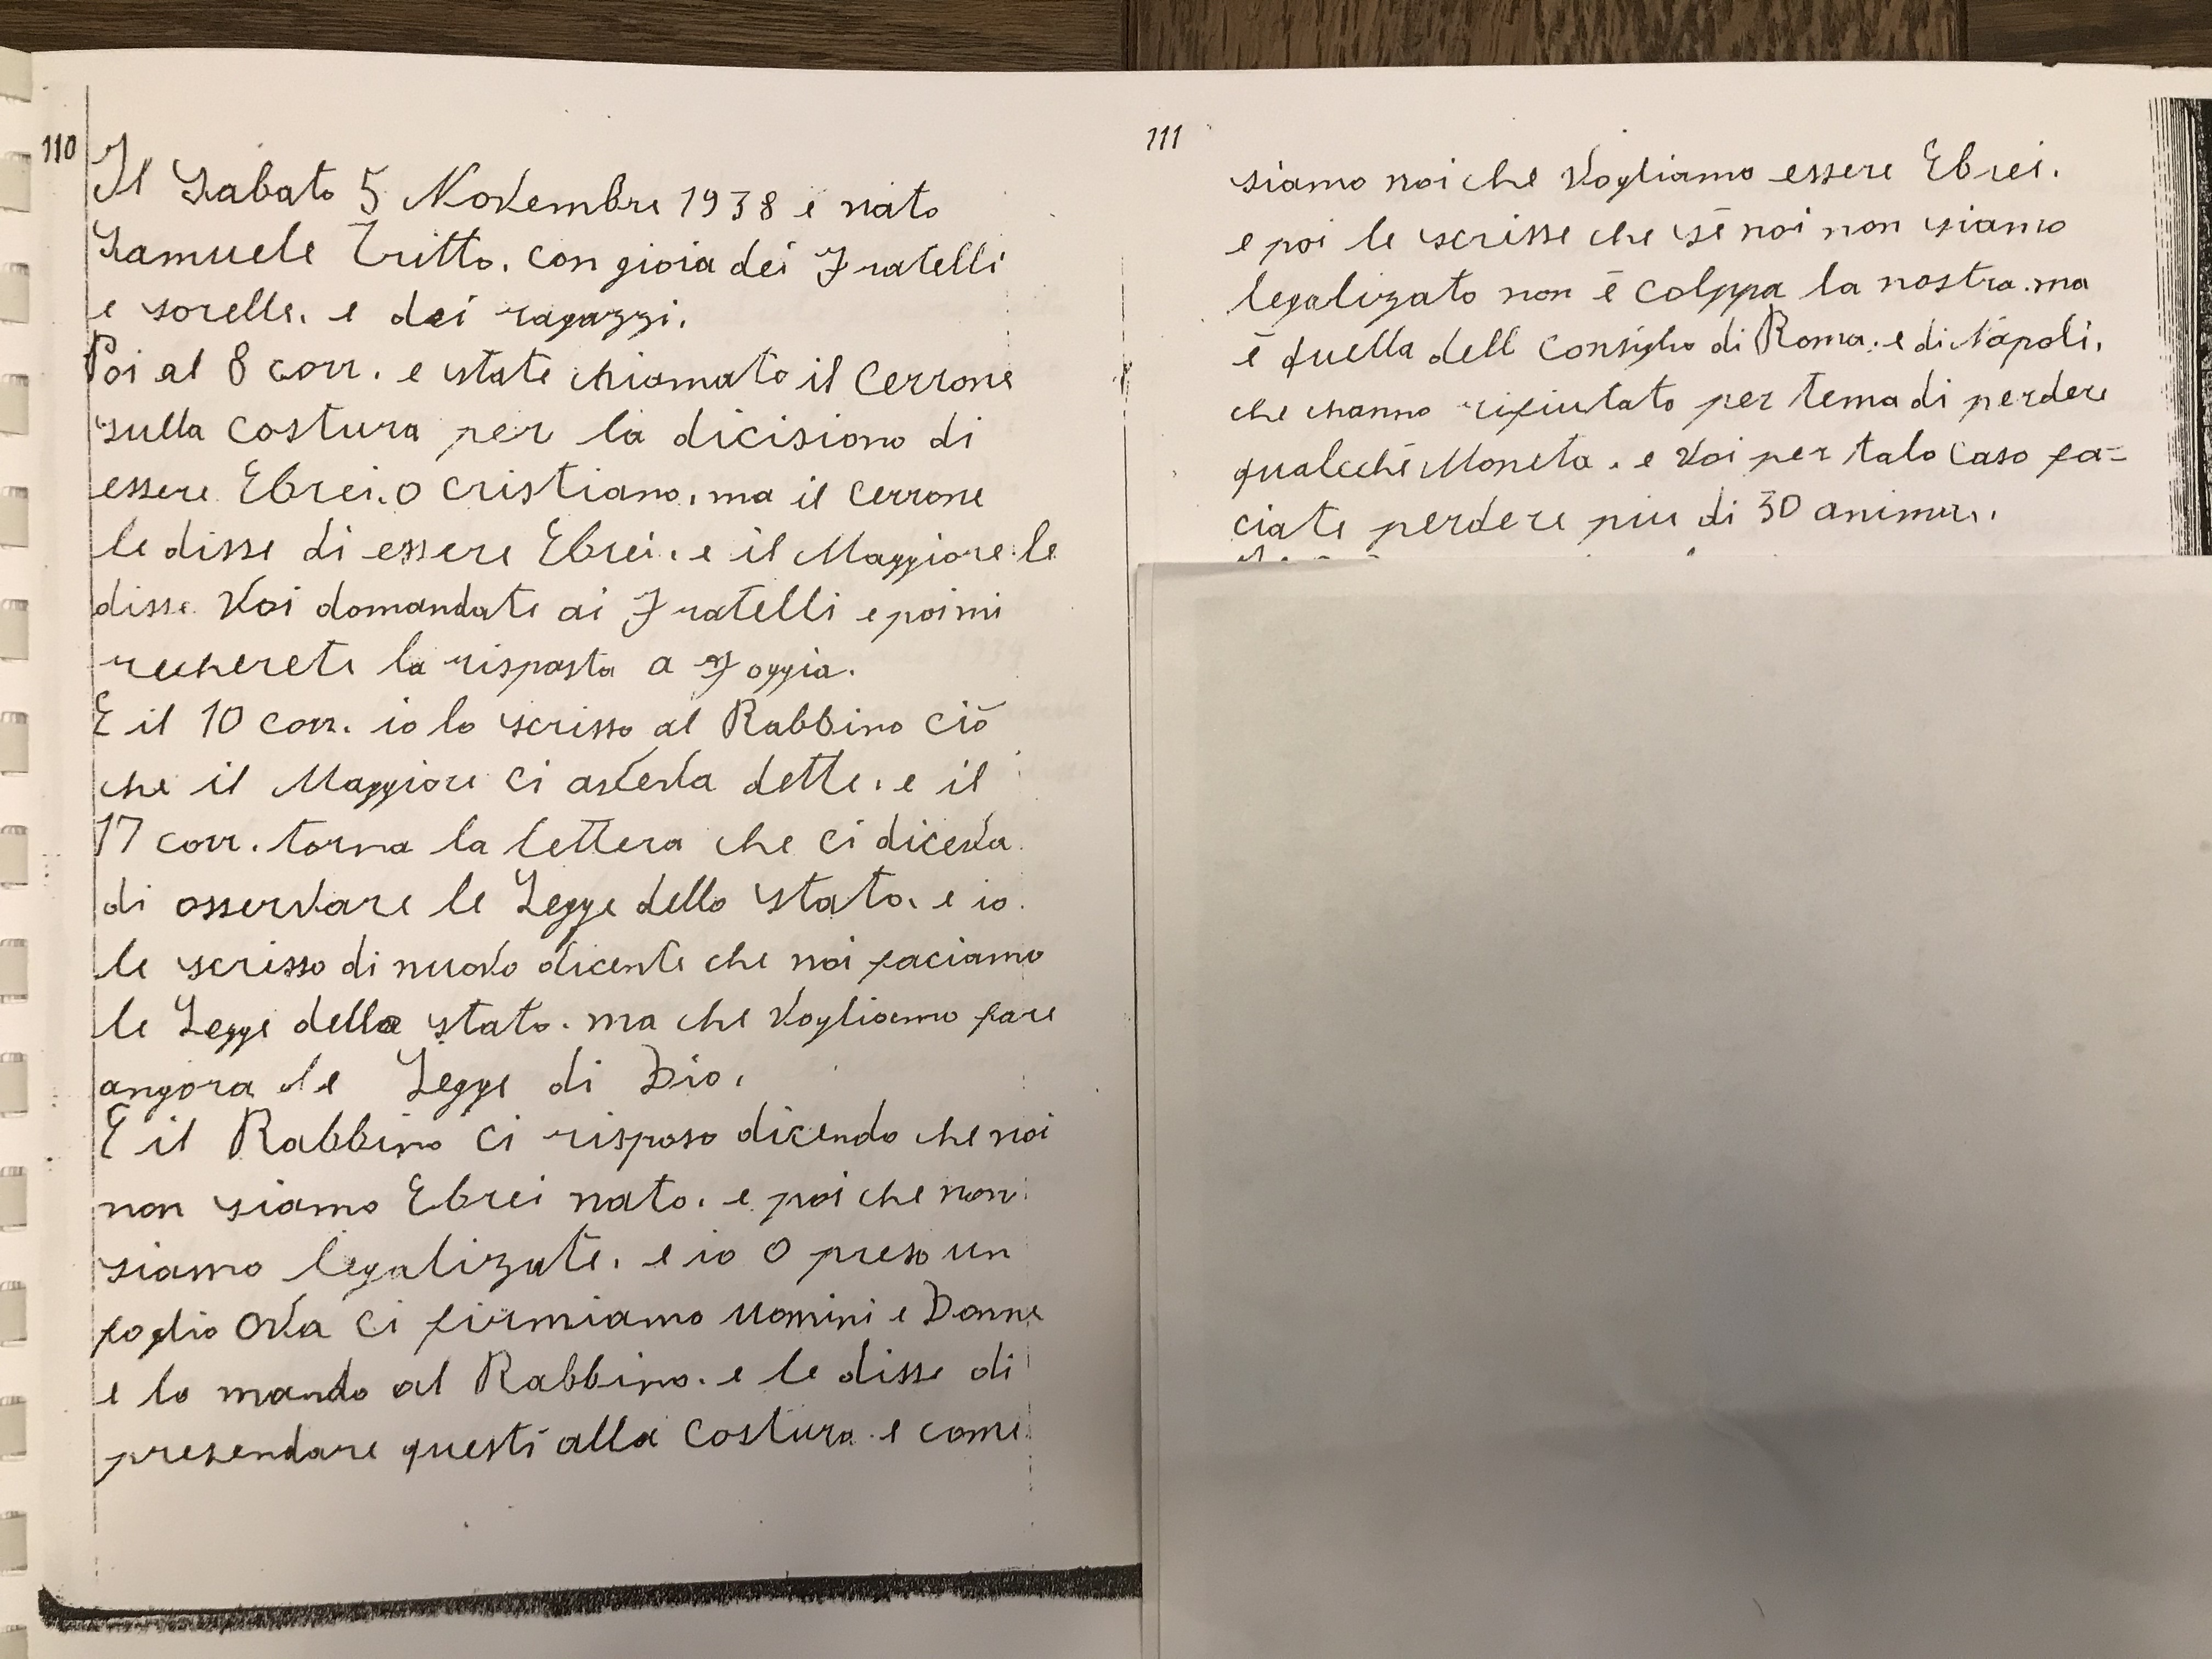 110
Il Sabato 5 Novembre 1938 e nato
Samuele Tritto. con gioia dei Fratelli
e sorelle. e dei ragazzi.
Poi al 8 corr. e state chiamato il Cerrone
sulla Costura per la dicisiono di
essere Ebrei. o cristiano. ma il Cerrone
le disse di essere Ebrei. e il Maggiore le
disse Voi domandate ai Fratelli e poi mi
recherete la risposta a Foggia.
E il 10 corr. io lo scrisso al Rabbino ciò
che il Maggiore ci aveva dette. e il
17 corr. torna la lettera che ci diceva
di osservare le Legge dello stato. e io
le scrisso di nuovo dicente che noi faciamo
le Legge dello stato. ma che Vogliamo fare
angora le Legge di Dio.
E il Rabbino ci risposo dicendo che noi
non siamo Ebrei nato. e poi che non
siamo legalizate. e io o preso un
foglio ova ci firmiamo Uomini e Donne
e lo mando al Rabbino. e le disse di
presendare questi alla Costura e come
111
siamo noi che Vogliamo essere Ebrei.
e poi le scrisse che sè noi non siamo
legalizato non è colppa la nostra. ma
è quella dell Consiglio di Roma. e di Napoli.
che hanno rifiutato per tema di perdere
qualcche Moneta. e Voi per talo Caso fa=
ciate perdere piu di 30 anime.